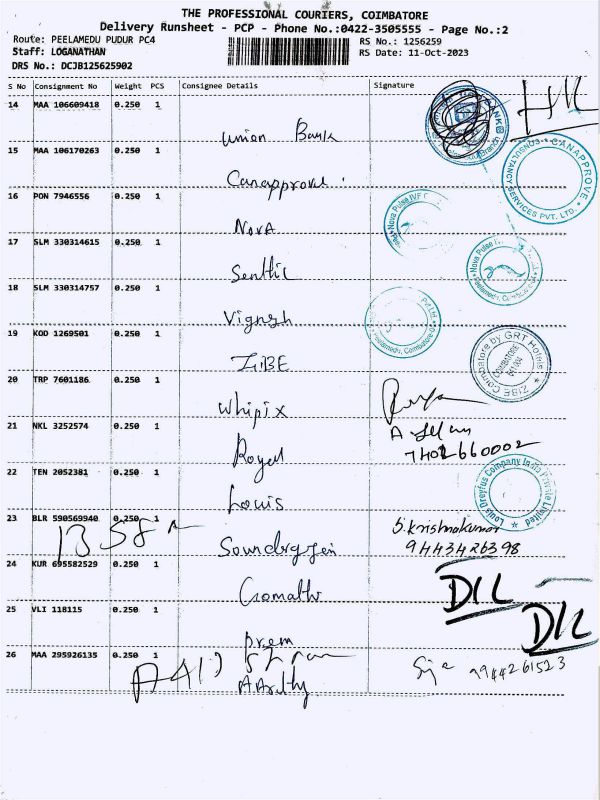 THE PROFESSIONAL COURIERS, COIMBATORE
Delivery Runsheet - PCP - Phone No.:0422-3505555 - Page No.:2
Route: PEELAMEDU PUDUR PC4
RS No.: 1256259
Staff: LOGANATHAN
RS Date: 11-Oct-2023
DRS No.: DCJB125625902
S No Consignment No Weight PCS Consignee Details Signature
14 MAA 106609418 0.250 1
Union Bank
15 MAA 106170263 0.250 1
Canapprove
CANAPPROVE CONSULTANCY SERVICES PVT. LTD.
16 PON 7946556 0.250 1
Nova Pulse IVF
NOVA
17 SLM 330314615 0.250 1
Nova Pulse
Peelamedu, Coimbatore
Senthil
18 SLM 330314757 0.250 1
Pvt Ltd
Peelamedu, Coimbatore
Vignesh
19 KOD 1269501 0.250 1
ZIBE Coimbatore by GRT Hotels
COIMBATORE
641 004
ZIBE
20 TRP 7601186 0.250 1
Whipix
21 NKL 3252574 0.250 1
Royal
22 TEN 2052381 0.250 1
Louis Dreyfus Company India Private Limited
Louis
23 BLR 590569940 0.250 1
S.Krishnakumar
9443426398
13 58
24 KUR 695582529 0.250 1
Gomathi
25 VLI 118115 0.250 1
DIL
DIL
Prem
26 MAA 295926135 0.250 1
9944261523
Aarthy